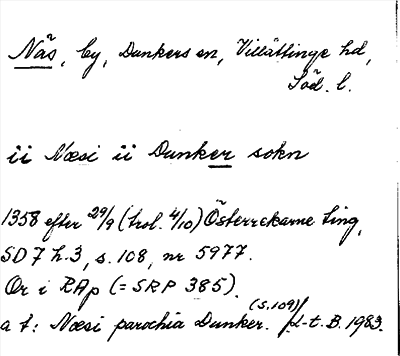 Näs, by, Dunkers sn, Villåttinge hd,
Söd. l.
ii Næsi ii Dunker sokn
1358 efter 29/9 (trol. 4/10) Österrekarne ting,
SD 7 h. 3, s. 108, nr 5977.
Or i RAp (= SRP 385).
a t: Næsi parochia Dunker. (s. 109)/ L-t. B. 1983.